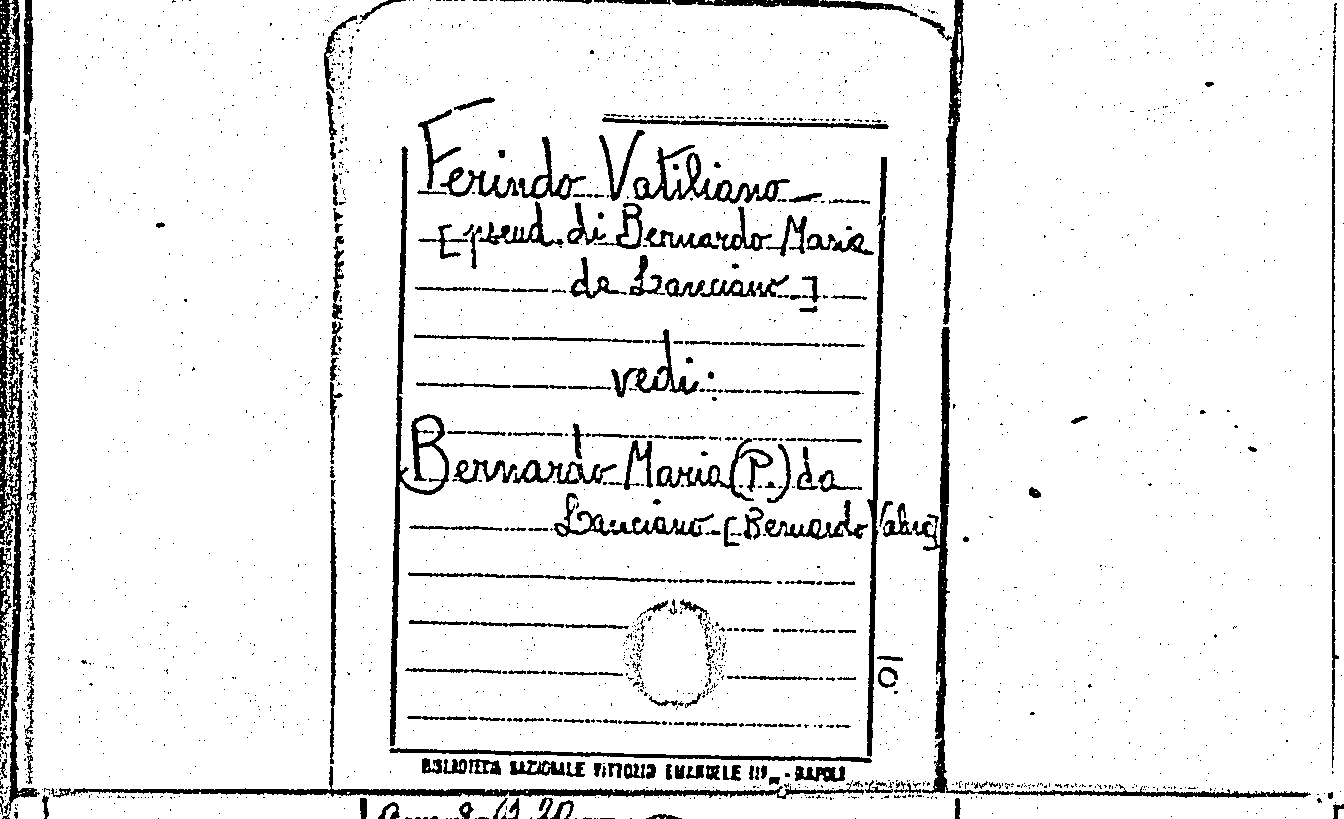 Ferindo Vatiliano
[pseud. di Bernardo Maria
da Lanciano]
vedi:
Bernardo Maria (P.) da
Lanciano [Bernardo Valera]
BIBLIOTECA NAZIONALE VITTORIO EMANUELE III - NAPOLI